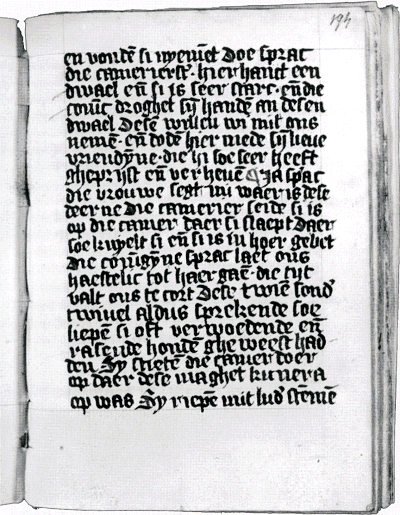 194
en vondẽ si nyemãt Doe sprac
die camerierst̛. hier hanct een
dwael eñ si is seer starc. eñ die
coniñc droghet sijn handẽ an desen
dwael Desẽ willen wi mit ons
nemẽ. eñ dodẽ hier mede sijn lieue
vriendyñe. die hi soe seer heeft
gheprijst eñ ver heuẽ Ja sp̃ac
die vrouwe segt mi waer is dese
deer ne Die camerier seide si is
op die camer daer si slaept Daer
soe knyelt si eñ si is in hoer gebet
Die coningyñe sprac laet ons
haestelic tot haer gaẽ. die tijt
valt ons te cort Dese twiẽ sond̛
twiuel aldus sprekende soe
liepẽ si oft verwoedende eñ
rasende hondẽ ghe weest had
den Sy stietẽ die camer doer
op daer dese maghet kunera
op was Sy riepẽ mit lud̛ stẽmẽ